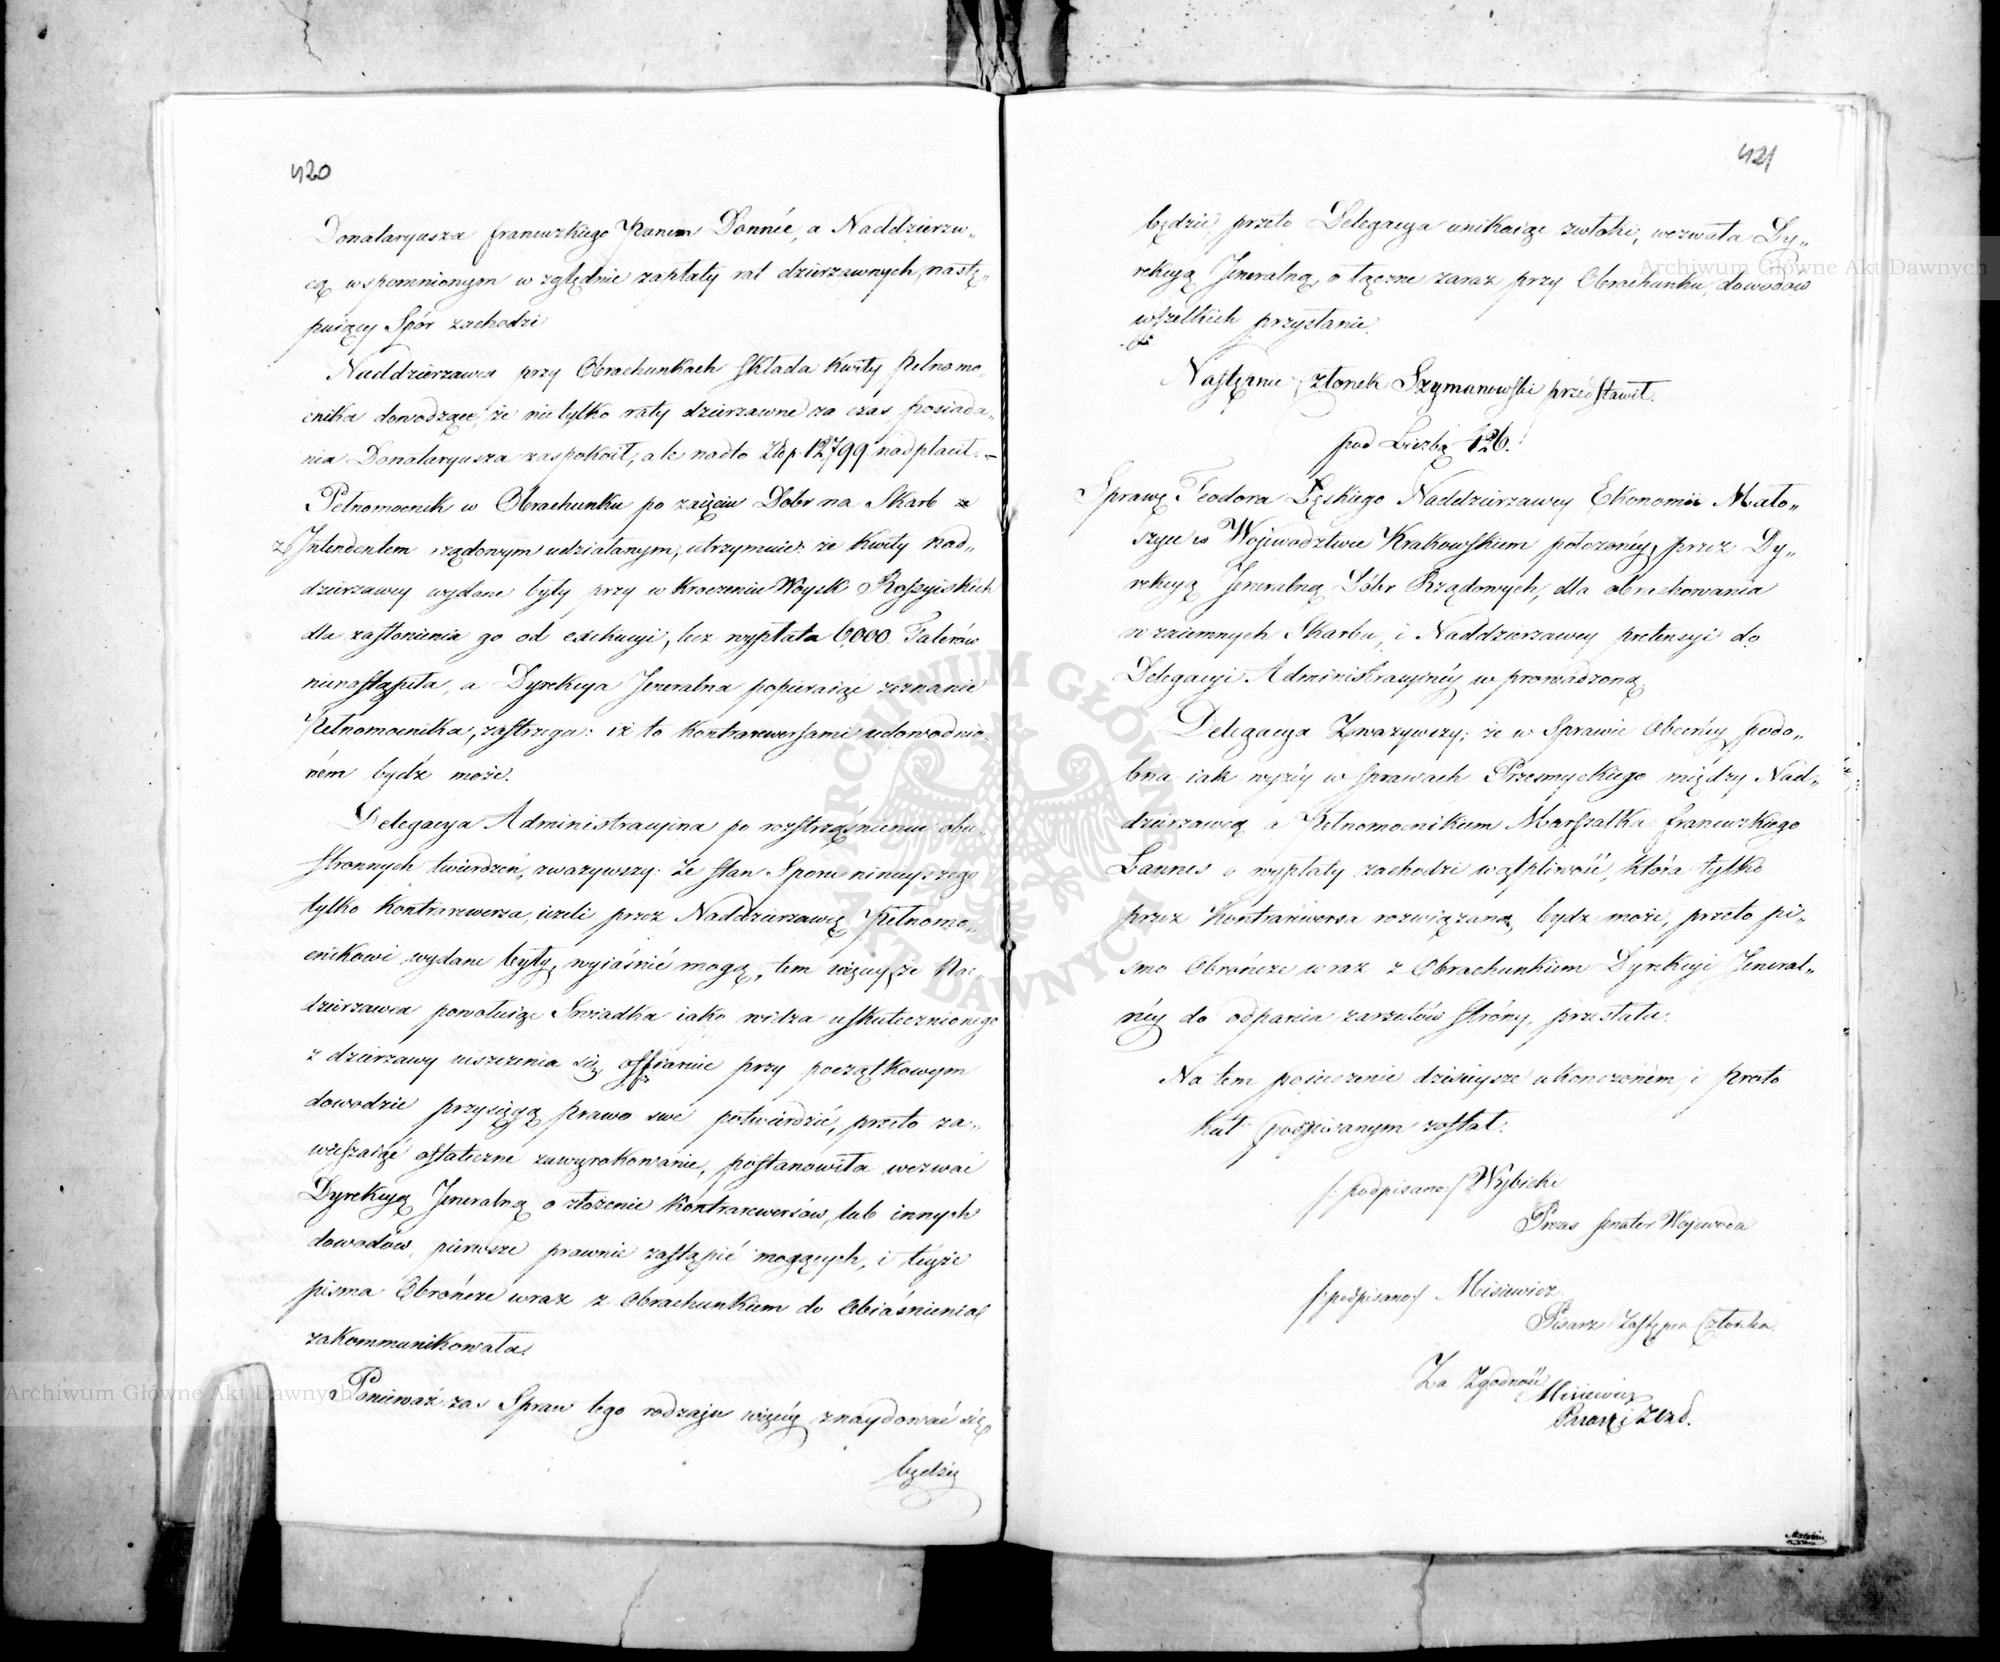 420
Donataryusza francuzkiego Panem Donnée, a Naddzierżaw„
cą wspomnionym względnie zapłaty rat dzierzawnych, nastę„
puiący Spór zachodzi
Naddzierzawca przy Obrachunkach składa kwity Pełnomo„
cnika dowodzące, że nie tylko raty dzierzawne za czas posiada„
nia Donataryusza zaspokoił, ale nadto Złp. 12799 nadpłacił. –
Pełnomocnik w Obrachunku po zaięciu Dobr na Skarb
z Intendentem rządowym udziałanym, utrzymuie: że kwity Nad„
dzierzawcy wydane były przy wkroczeniu Woysk Rossyiskich
dla zasłonienia go od exekucyi, lecz wypłata 6,000 Talerów
nienastąpiła, a Dyrekcya Jeneralna popieraiąc zeznanie
Pełnomocnika, zastrzega: iż to Kontrarewersami udowodnio„
ném bydź może.
Delegacya Administracyina po rozstrząśnieniu obu„
stronnych twierdzeń, zważywszy: że stan Sporu ninieyszego
tylko Kontrarewersa, ieżeli przez Naddzierzawcę Pełnomo„
cnikowi wydane były, wyiaśnić mogą, tem więcey, że Nad„
dzierzawca powołuiąc Swiadka iako widza uskutecznionego
z dzierzawy uiszczenia się, ofiaruie przy początkowym
dowodzie przysięgą prawo swe potwierdzić, przeto za„
wieszaiąc ostateczne zawyrokowanie, postanowiła wezwać
Dyrekcyą Jeneralną o złożenie Kontrarewersów, lub innych
dowodów, pierwsze prawnie zastąpić mogących, i teyże
pisma Obrończe wraz z Obrachunkiem do Obiaśnienia
zakommunikowała.
Ponieważ zaś Spraw tego rodzaju więcéy znaydować się
będzie
421
będzie przeto Delegacya unikaiąc zwłoki, wezwała Dy„
rekcyą Jeneralną, o łączne zaraz przy Obrachunku, dowodów
wszelkich przysłanie.
Następnie Członek Szymanowski przedstawił.
pod Liczbą 126.
Sprawę Teodora Łęskiego Naddzierzawcy Ekonomii Mało„
szyce w Województwie Krakowskiem położonéy, przez Dy„
rekcyą Jeneralną Dóbr Rządowych, dla obrachowania
wzaiemnych Skarbu, i Naddzierzawcy pretensyi do
Delegacyi Administracyinéy wprowadzoną.
Delegacya Zważywszy, że w Sprawie Obecnéy podo„
bna iak wyżéy w sprawach Przemyckiego między Nad„
dzierzawcą a Pełnomocnikiem Marszałka francuzkiego
Lannes o wypłaty zachodzi wątpliwość, która tylko
przez Kontrarewersa rozwiązaną bydz może, przeto pi„
smo Obrończe wraz z Obrachunkiem Dyrekcyi Jeneral„
néy do odparcia zarzutów Strony, przesłała.
Na tem posiedzenie dzisieysze ukończoném, i Proto
kuł podpisanym został.
/: podpisano :/ Wybicki
Prezes Senator Wojewoda
/: podpisano :/ Misiewicz
Pisarz Zastępca Członka.
Za Zgodność
Misiewicz
Archiwum Główne Akt Dawnych
Archiwum Główne Akt Dawnych
ARCHIWUM GŁÓWNE
AKT DAWNYCH